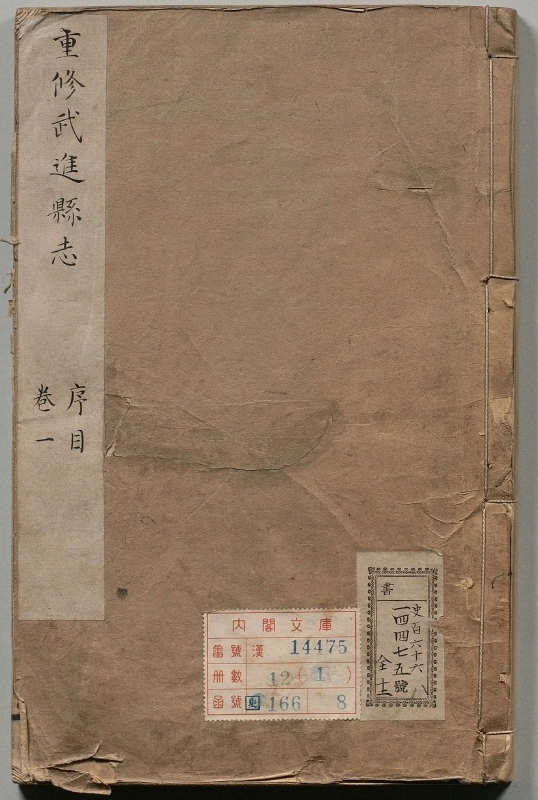 重修武進縣志
序目
卷一
內閣文庫
番號 漢 14475
冊數 12 ( 1 )
函號 史 166 8
書
史百六十六 八
一四四七五號
全十二